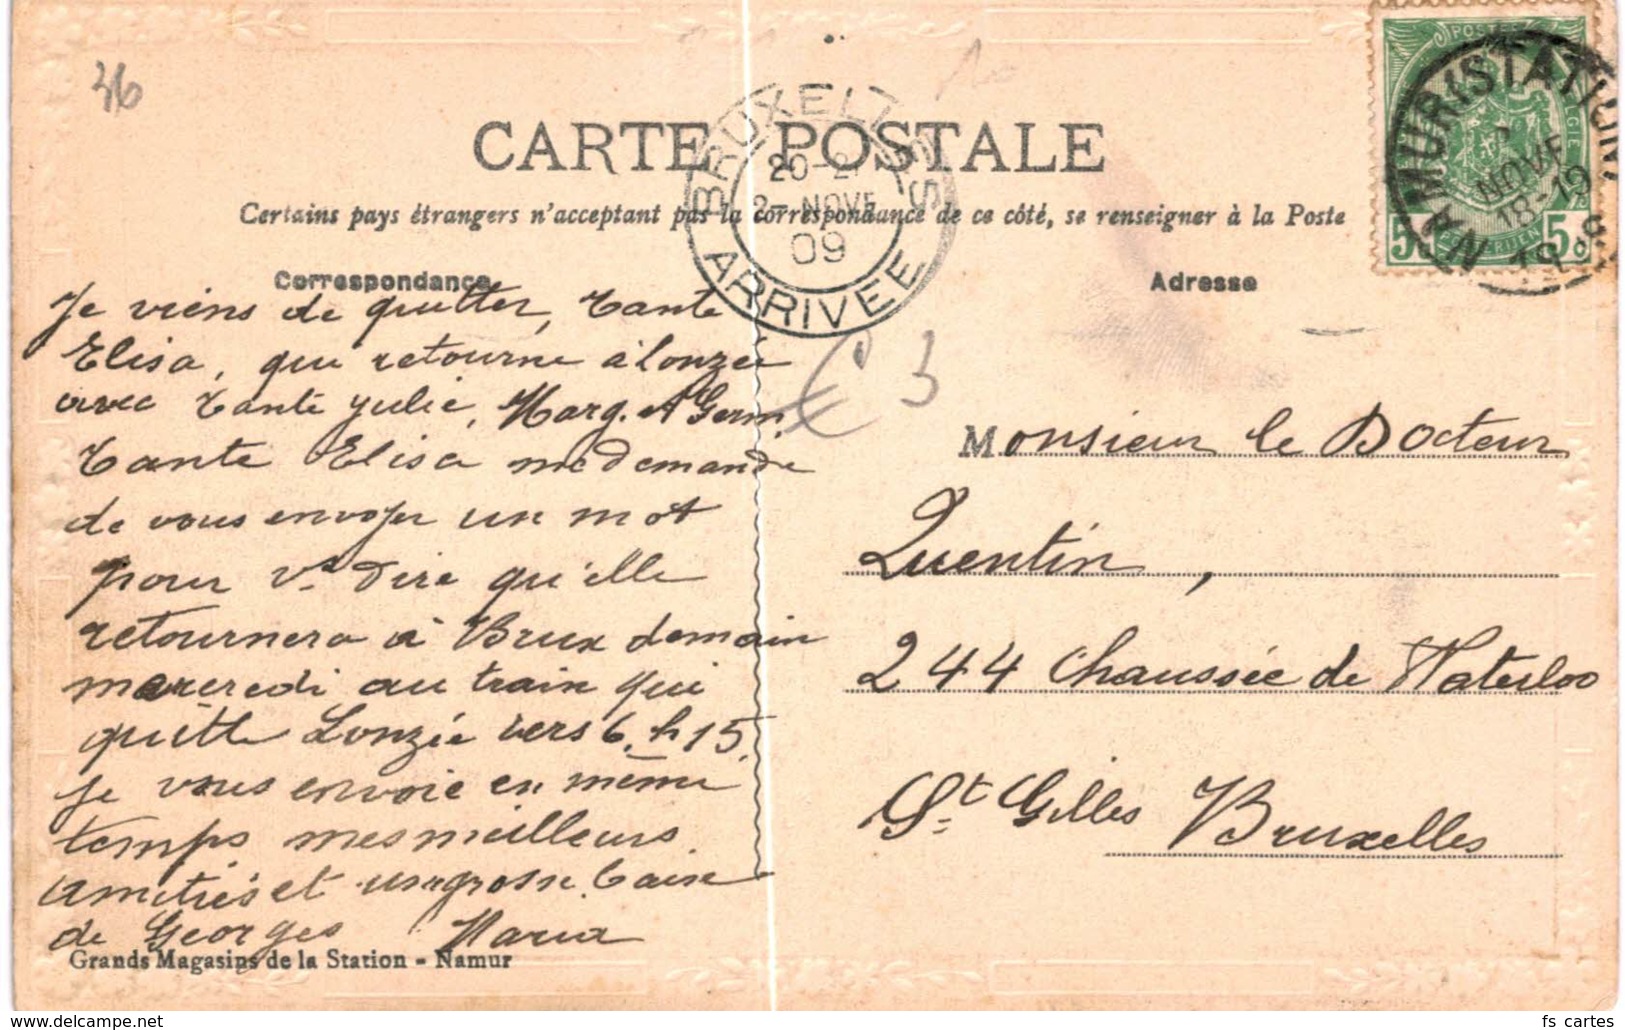 36
CARTE POSTALE
BRUXELLES
20-21
2- NOVE
09
ARRIVEE
NAMUR (STATION)
NOVE
18-19
5c 5c
Certains pays étrangers n'acceptant pas la correspondance de ce côté, se renseigner à la Poste
Correspondance
Je viens de quitter, Tante
Elisa, qui retourne à Lonzée
avec Tante Julie, Marg. et Germ.
Tante Elisa me demande
de vous envoyer un mot
pour vs dire qu'elle
retournera à Brux demain
mercredi au train qui
quitte Lonzée vers 6 h 15.
Je vous envoie en même
temps mes meilleurs
amitiés et une grosse baise
de Georges Maria
Grands Magasins de la Station - Namur
€ 3
Adresse
Monsieur le Docteur
Quentin,
244 Chaussée de Waterloo
St Gilles Bruxelles
fs cartes